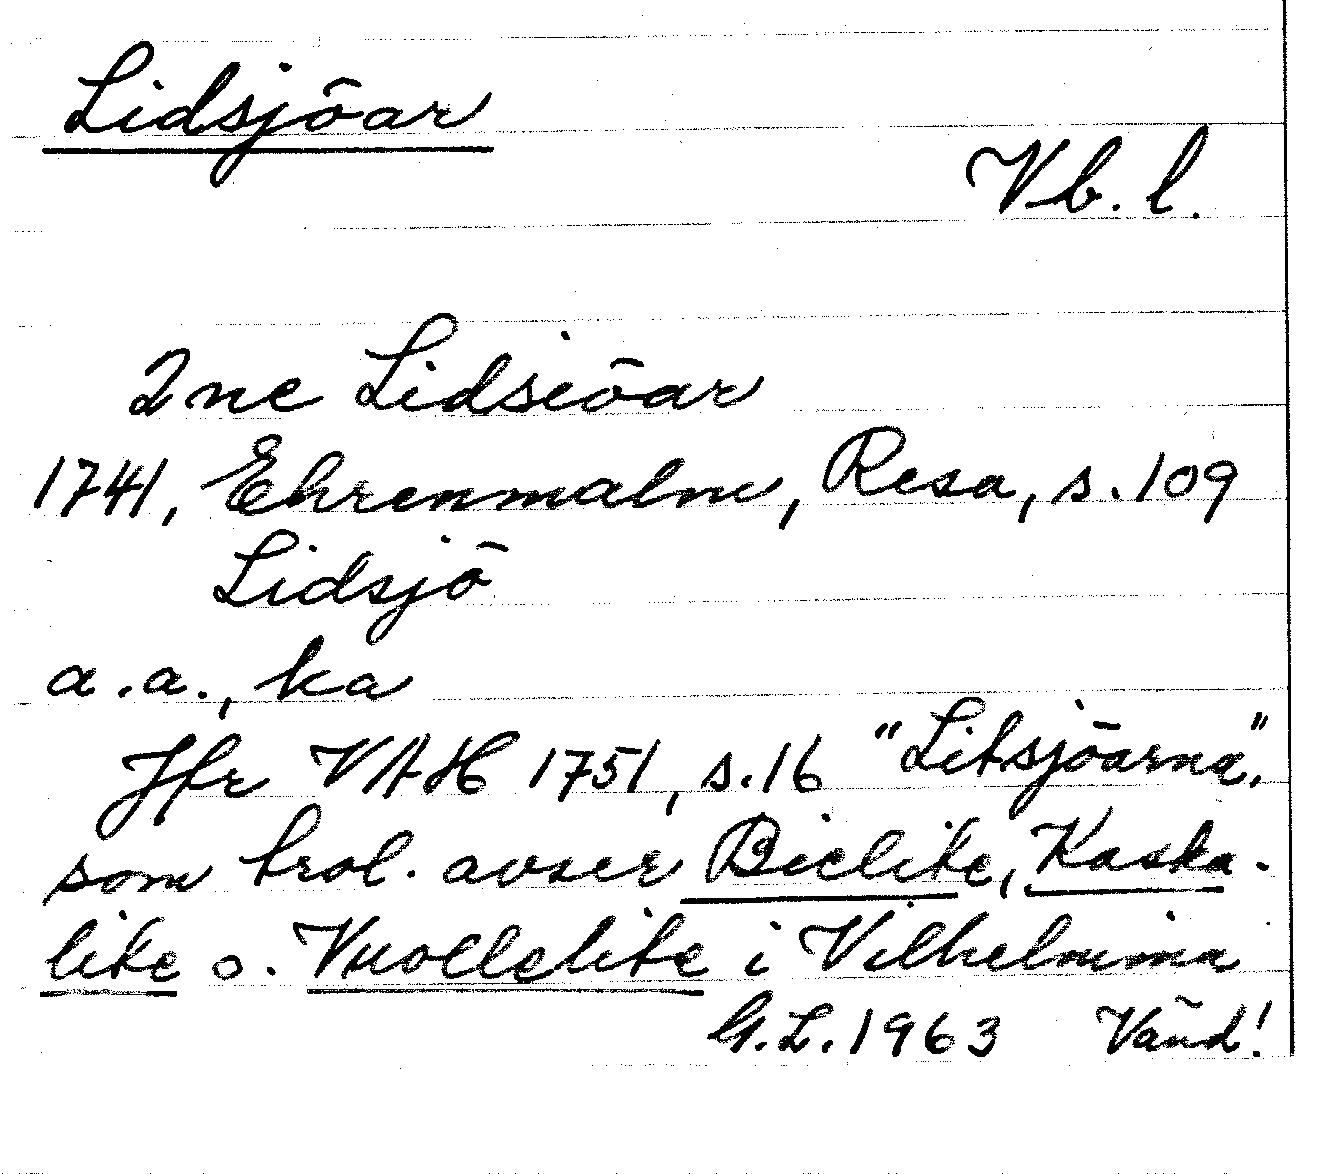 Lidsjöar
Vb. l.
2ne Lidsiöar
1741, Ehrenmalm, Resa, s. 109
Lidsjö
a.a., ka
Jfr VAH 1751, s. 16 "Litsjöarna",
som trol. avser Bielite, Kaska-
lite o. Vuollelite i Vilhelmina
G.L. 1963 Vänd!